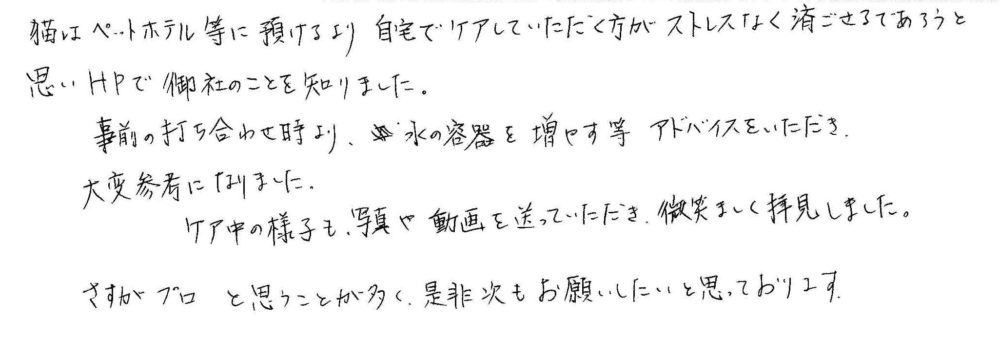 猫はペットホテル等に預けるより 自宅でケアしていただく方がストレスなく過ごせるであろうと
思いHPで御社のことを知りました。
事前の打ち合わせ時より、水の容器を増やす等 アドバイスをいただき、
大変参考になりました。
ケア中の様子も、写真や動画を送っていただき、微笑ましく拝見しました。
さすがプロ と思うことが多く、是非次もお願いしたいと思っております。